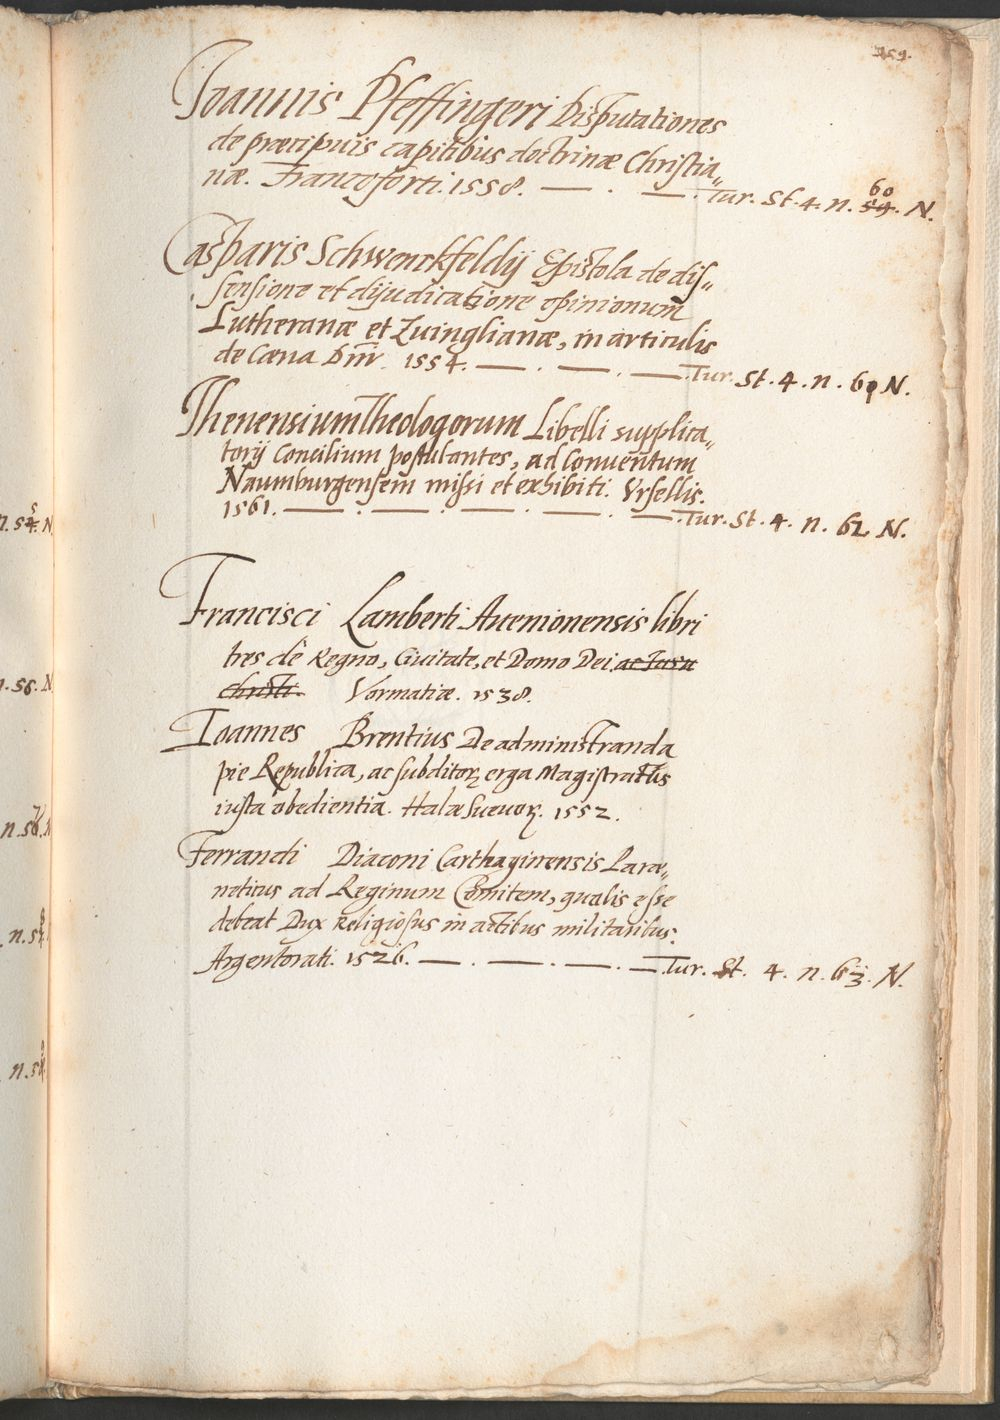 259.
Ioannis Pfeffingeri Disputationes
de præcipuis capitibus doctrinæ Christia„
næ. Francoforti. 1558. — . — . Tur. St. 4. n. 59. 60 N.
Casparis Schwenckfeldij Epistola de dis„
sensione et dijudicatione opinionum
Lutheranæ et Zuinglianæ, in articulis
de Cœna Dnī. 1554. — . — . — . Tur. St. 4. n. 61 N.
Thenensium Theologorum Libelli supplica„
torij Concilium postulantes, ad Conventum
Naumburgensem missi et exhibiti. Vrsellis.
1561. — . — . — . — . — . Tur. St. 4. n. 62 N.
Francisci Lamberti Auenionensis libri
tres de Regno, Ciuitate, et Domo Dei ac Iesu
Christi. Vormatiæ. 1538.
Ioannes Brentius De administranda
pie Republica, ac subditorꝝ erga Magistratus
iusta obedientia. Halæ Sueuoꝝ. 1552.
Ferrandi Diaconi Carthaginensis Paræ„
neticus ad Reginum Comitem, qualis esse
debeat Dux religiosus in actibus militaribus.
Argentorati. 1526. — . — . — . — . Tur. St. 4. n. 63. N.
n. 56. N